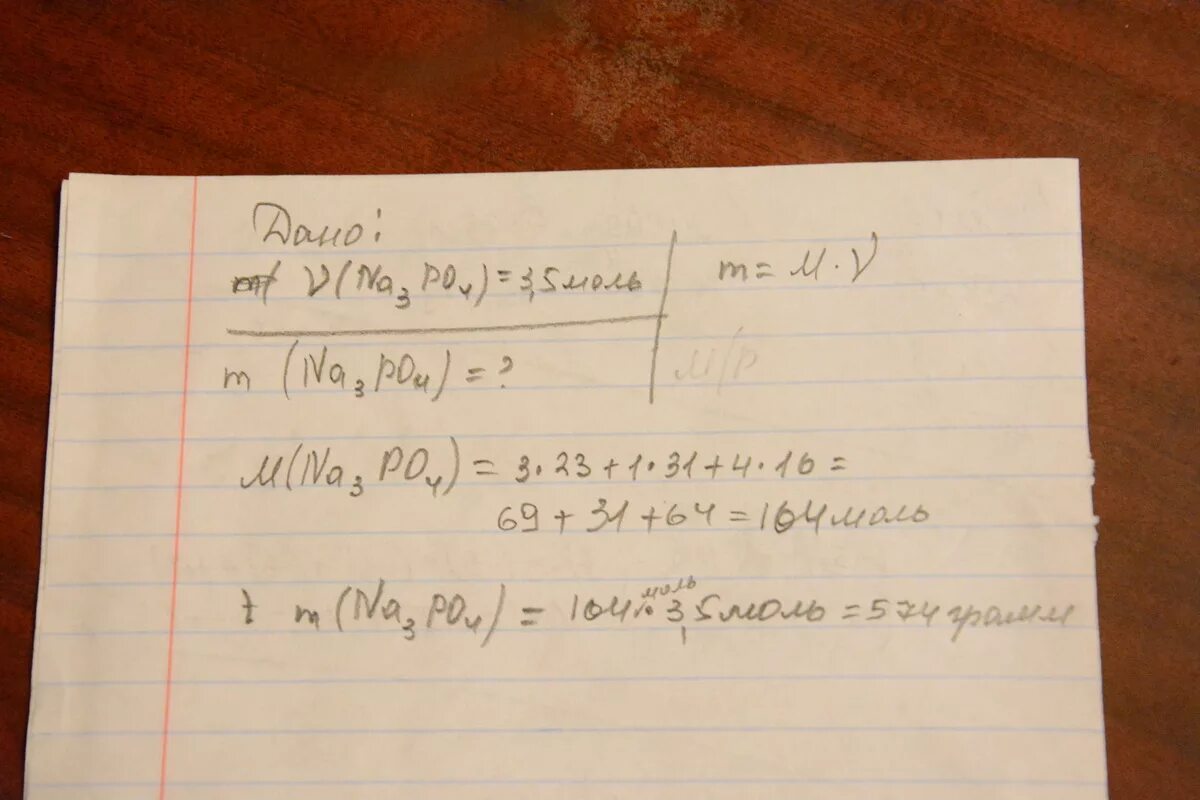 Дано:
ν(Na₃PO₄) = 3,5 моль
m = M·ν
m (Na₃PO₄) = ?
M(Na₃PO₄) = 3·23+1·31+4·16=
69+31+64=164моль
m(Na₃PO₄) = 164 моль · 3,5моль=574грамм